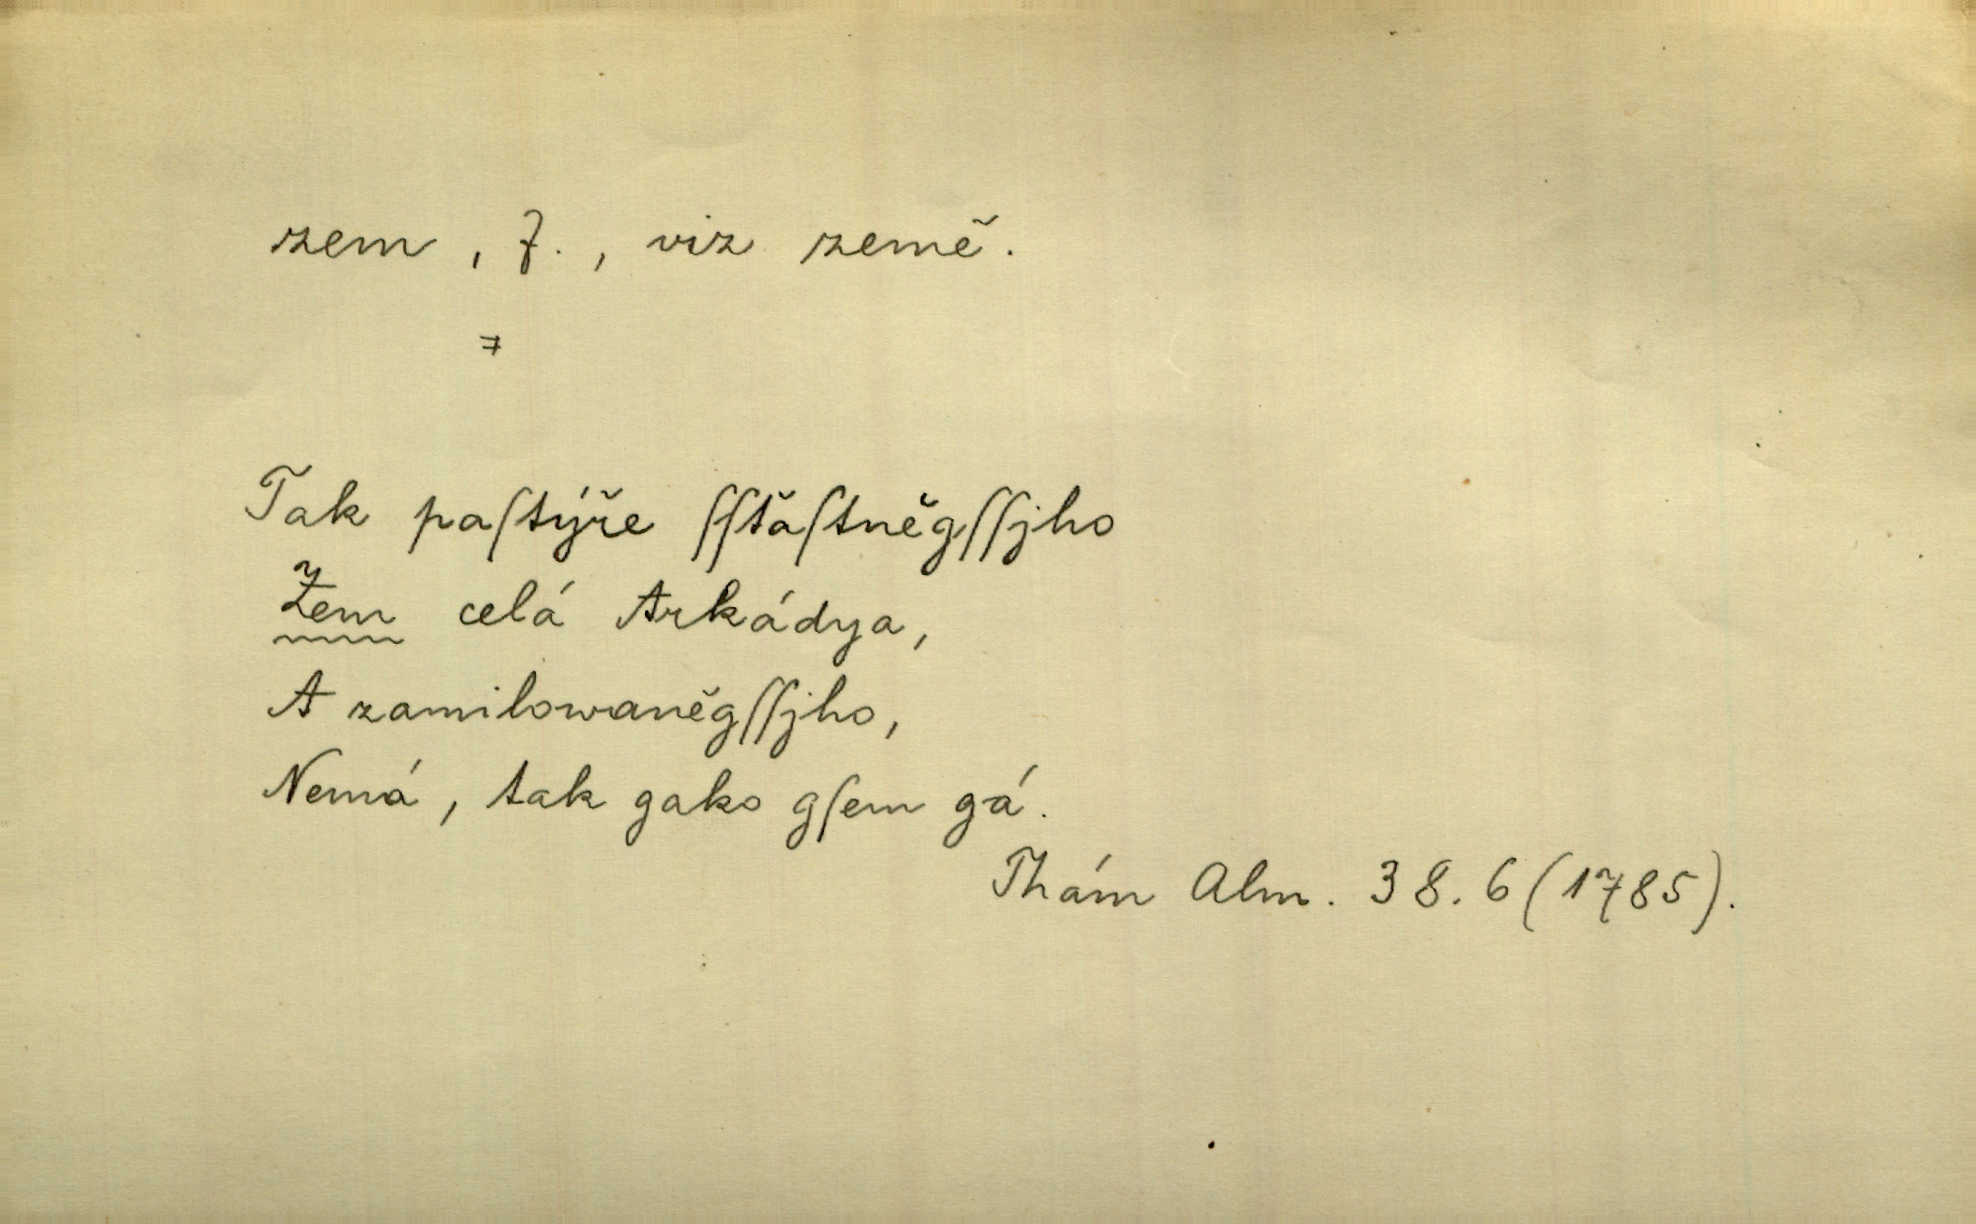 zem, f., viz země.
≠
Tak paſtýře ſſťaſtněgſſjho
Zem celá Arkádya,
A zamilowaněgſſjho,
Nemá, tak gako gſem gá.
Thám Alm. 38. 6 (1785).